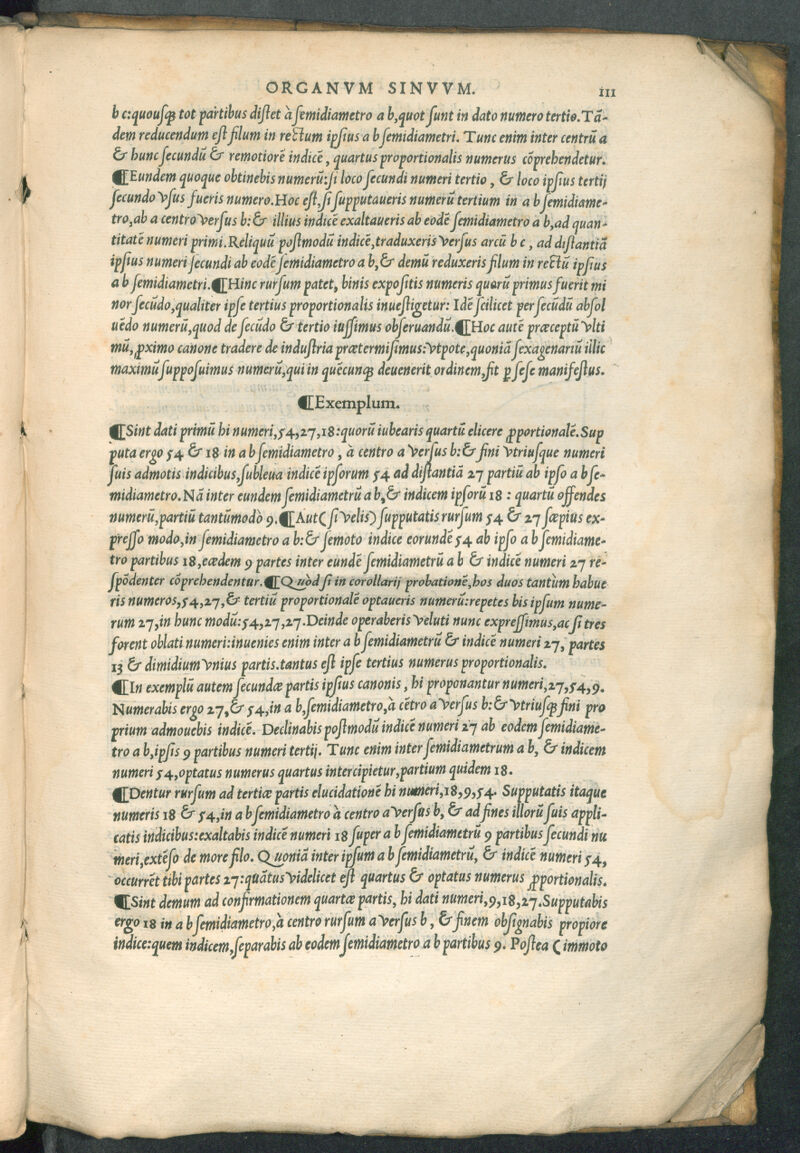 ORGANVM SINVVM. III
b c:quouſq; tot partibus diſtet à ſemidiametro a b,quot ſunt in dato numero tertio.Tã-
dem reducendum eſt filum in rectum ipſius a b ſemidiametri. Tunc enim inter centrũ a
& hunc ſecundũ & remotiorẽ indicẽ, quartus proportionalis numerus cõprehendetur.
¶Eundem quoque obtinebis numerũ:ſi loco ſecundi numeri tertio, & loco ipſius tertij
ſecundo vſus fueris numero.Hoc eſt,ſi ſupputaueris numerũ tertium in a b ſemidiame-
tro,ab a centro verſus b:& illius indicẽ exaltaueris ab eodẽ ſemidiametro a b,ad quan-
titatẽ numeri primi.Reliquũ poſtmodũ indicẽ,traduxeris verſus arcũ b c, ad diſtantiã
ipſius numeri ſecundi ab eodẽ ſemidiametro a b,& demũ reduxeris filum in rectũ ipſius
a b ſemidiametri.¶Hinc rurſum patet, binis expoſitis numeris quorũ primus fuerit mi
nor ſecũdo,qualiter ipſe tertius proportionalis inueſtigetur: Idẽ ſcilicet per ſecũdũ abſol
uẽdo numerũ,quod de ſecũdo & tertio iuſſimus obſeruandũ.¶Hoc autẽ præceptũ vlti
mũ,ꝓximo canone tradere de induſtria prætermiſimus:vtpote,quoniã ſexagenariũ illic
maximũ ſuppoſuimus numerũ,qui in quẽcunq; deuenerit ordinem,fit ꝑ ſeſe manifeſtus.
¶Exemplum.
¶Sint dati primũ hi numeri,54,27,18:quorũ iubearis quartũ elicere ꝓportionalẽ.Sup
puta ergo 54 & 18 in a b ſemidiametro, à centro a verſus b:& fini vtriuſque numeri
ſuis admotis indicibus,ſubleua indicẽ ipſorum 54 ad diſtantiã 27 partiũ ab ipſo a b ſe-
midiametro.Nã inter eundem ſemidiametrũ a b,& indicem ipſorũ 18 : quartũ offendes
numerũ,partiũ tantũmodò 9.¶Aut(ſi velis) ſupputatis rurſum 54 & 27 ſæpius ex-
preſſo modo,in ſemidiametro a b:& ſemoto indice eorundẽ 54 ab ipſo a b ſemidiame-
tro partibus 18,eædem 9 partes inter eundẽ ſemidiametrũ a b & indicẽ numeri 27 re-
ſpõdenter cõprehendentur.¶Quòd ſi in corollarij probationẽ,hos duos tantùm habue
ris numeros,54,27,& tertiũ proportionalẽ optaueris numerũ:repetes bis ipſum nume-
rum 27,in hunc modũ:54,27,27.Deinde operaberis veluti nunc expreſſimus,ac ſi tres
forent oblati numeri:inuenies enim inter a b ſemidiametrũ & indicẽ numeri 27, partes
13 & dimidium vnius partis.tantus eſt ipſe tertius numerus proportionalis.
¶In exemplũ autem ſecundæ partis ipſius canonis, hi proponantur numeri,27,54,9.
Numerabis ergo 27,& 54,in a b,ſemidiametro,à cẽtro a verſus b:& vtriuſq; fini pro
prium admouebis indicẽ. Declinabis poſtmodũ indicẽ numeri 27 ab eodem ſemidiame-
tro a b,ipſis 9 partibus numeri tertij. Tunc enim inter ſemidiametrum a b, & indicem
numeri 54,optatus numerus quartus intercipietur,partium quidem 18.
¶Dentur rurſum ad tertiæ partis elucidationẽ hi numeri,18,9,54. Supputatis itaque
numeris 18 & 54,in a b ſemidiametro à centro a verſus b, & ad fines illorũ ſuis appli-
catis indicibus:exaltabis indicẽ numeri 18 ſuper a b ſemidiametrũ 9 partibus ſecundi nu
meri,extẽſo de more filo. Quoniã inter ipſum a b ſemidiametrũ, & indicẽ numeri 54,
occurrẽt tibi partes 27:quãtus videlicet eſt quartus & optatus numerus ꝓportionalis.
¶Sint demum ad confirmationem quartæ partis, hi dati numeri,9,18,27.Supputabis
ergo 18 in a b ſemidiametro,à centro rurſum a verſus b, & finem obſignabis propiore
indice:quem indicem,ſeparabis ab eodem ſemidiametro a b partibus 9. Poſtea (immoto